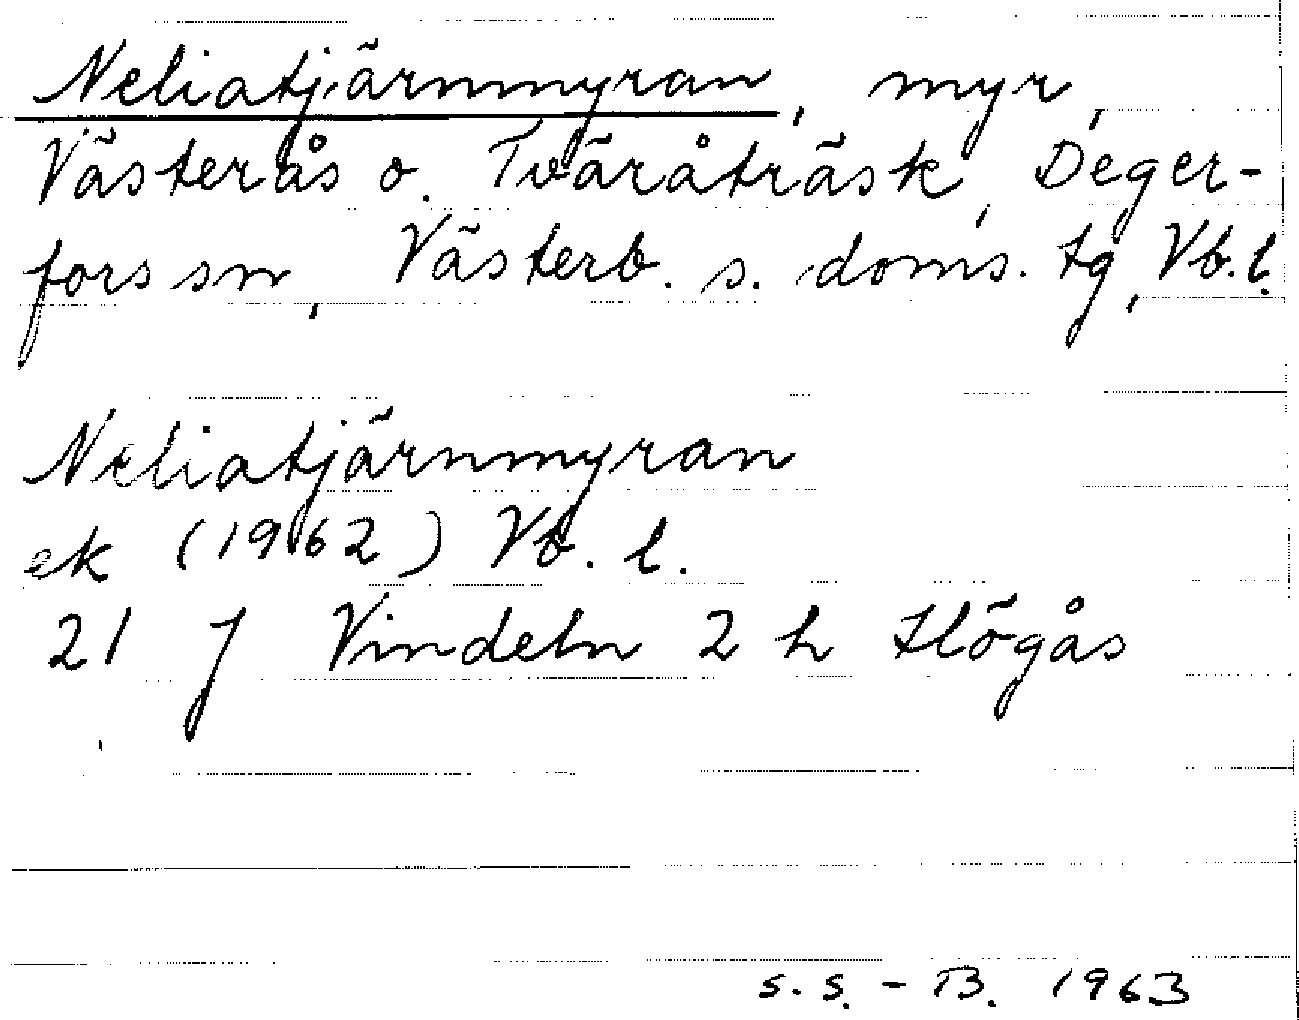 Neliatjärnmyran, myr,
Västerås o. Tväråträsk, Deger-
fors sn, Västerb. s. doms. tg, Vb. l.
Neliatjärnmyran
ek (1962) Vb. l.
21 J Vindeln 2 h Högås
S.S. - B. 1963